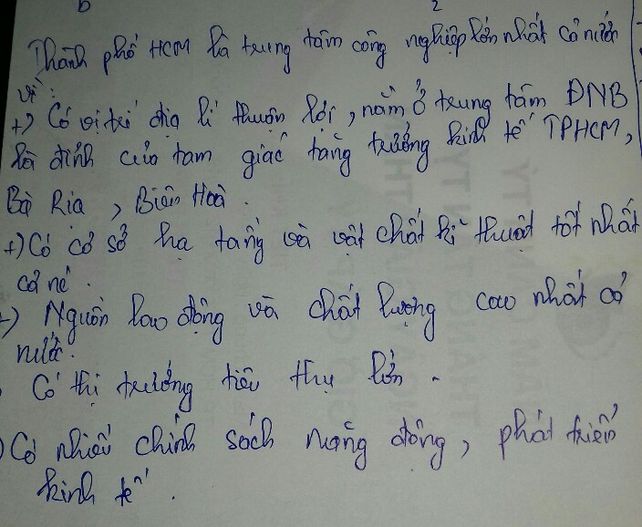 Thành phố HCM là trung tâm công nghiệp lớn nhất cả nước
vì:
+) Có vị trí địa lí thuận lợi, nằm ở trung tâm ĐNB
là đỉnh của tam giác tăng trưởng kinh tế TPHCM,
Bà Rịa, Biên Hoà.
+) Có cơ sở hạ tầng và vật chất kĩ thuật tốt nhất
cả nc.
+) Nguồn lao động và chất lượng cao nhất cả
nước.
Có thị trường tiêu thụ lớn.
) Có nhiều chính sách năng động, phát triển
kinh tế.